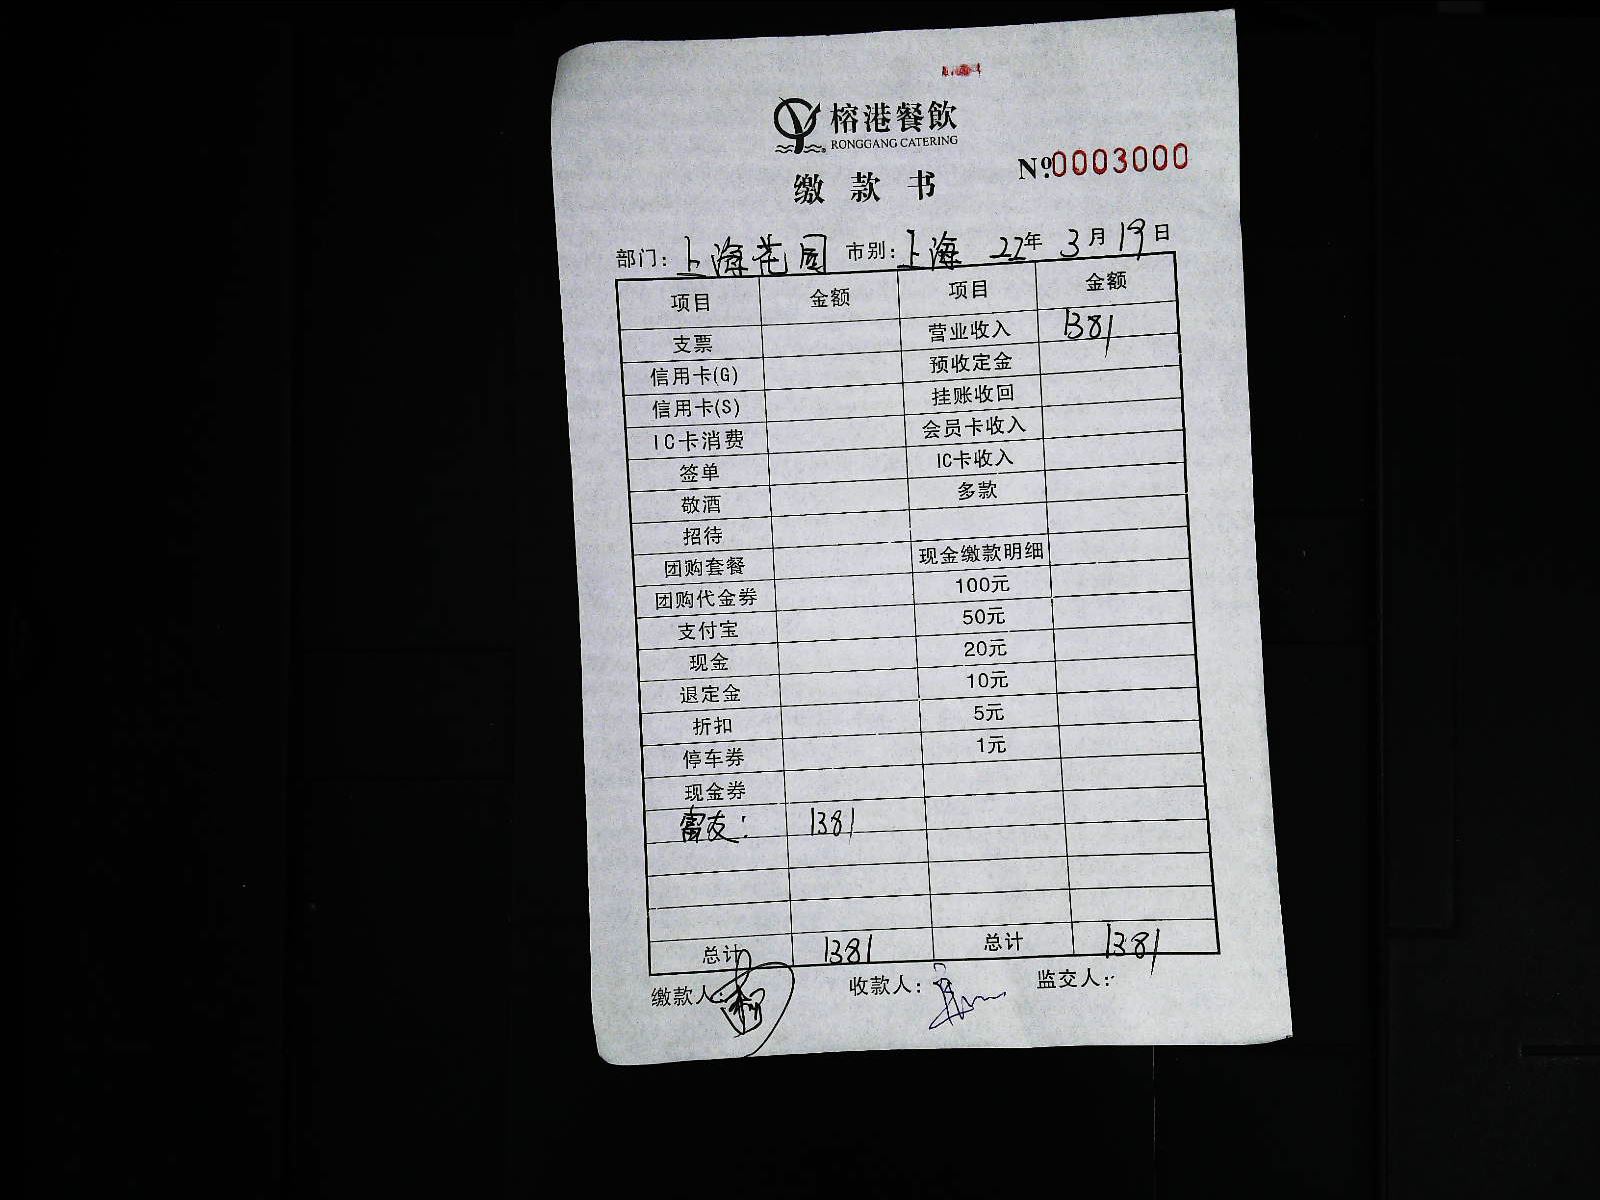 榕港餐飲
RONGGANG CATERING
缴款书
Nº:0003000
部门: 上海花园 市别: 上海 22年 3月 19日
项目 金额 项目 金额
支票 营业收入 1381
信用卡(G) 预收定金
信用卡(S) 挂账收回
IC卡消费 会员卡收入
签单 IC卡收入
敬酒 多款
招待
团购套餐 现金缴款明细
团购代金券 100元
支付宝 50元
现金 20元
退定金 10元
折扣 5元
停车券 1元
现金券
雷友: 1381
总计 1381 总计 1381
缴款人: 收款人: 监交人: